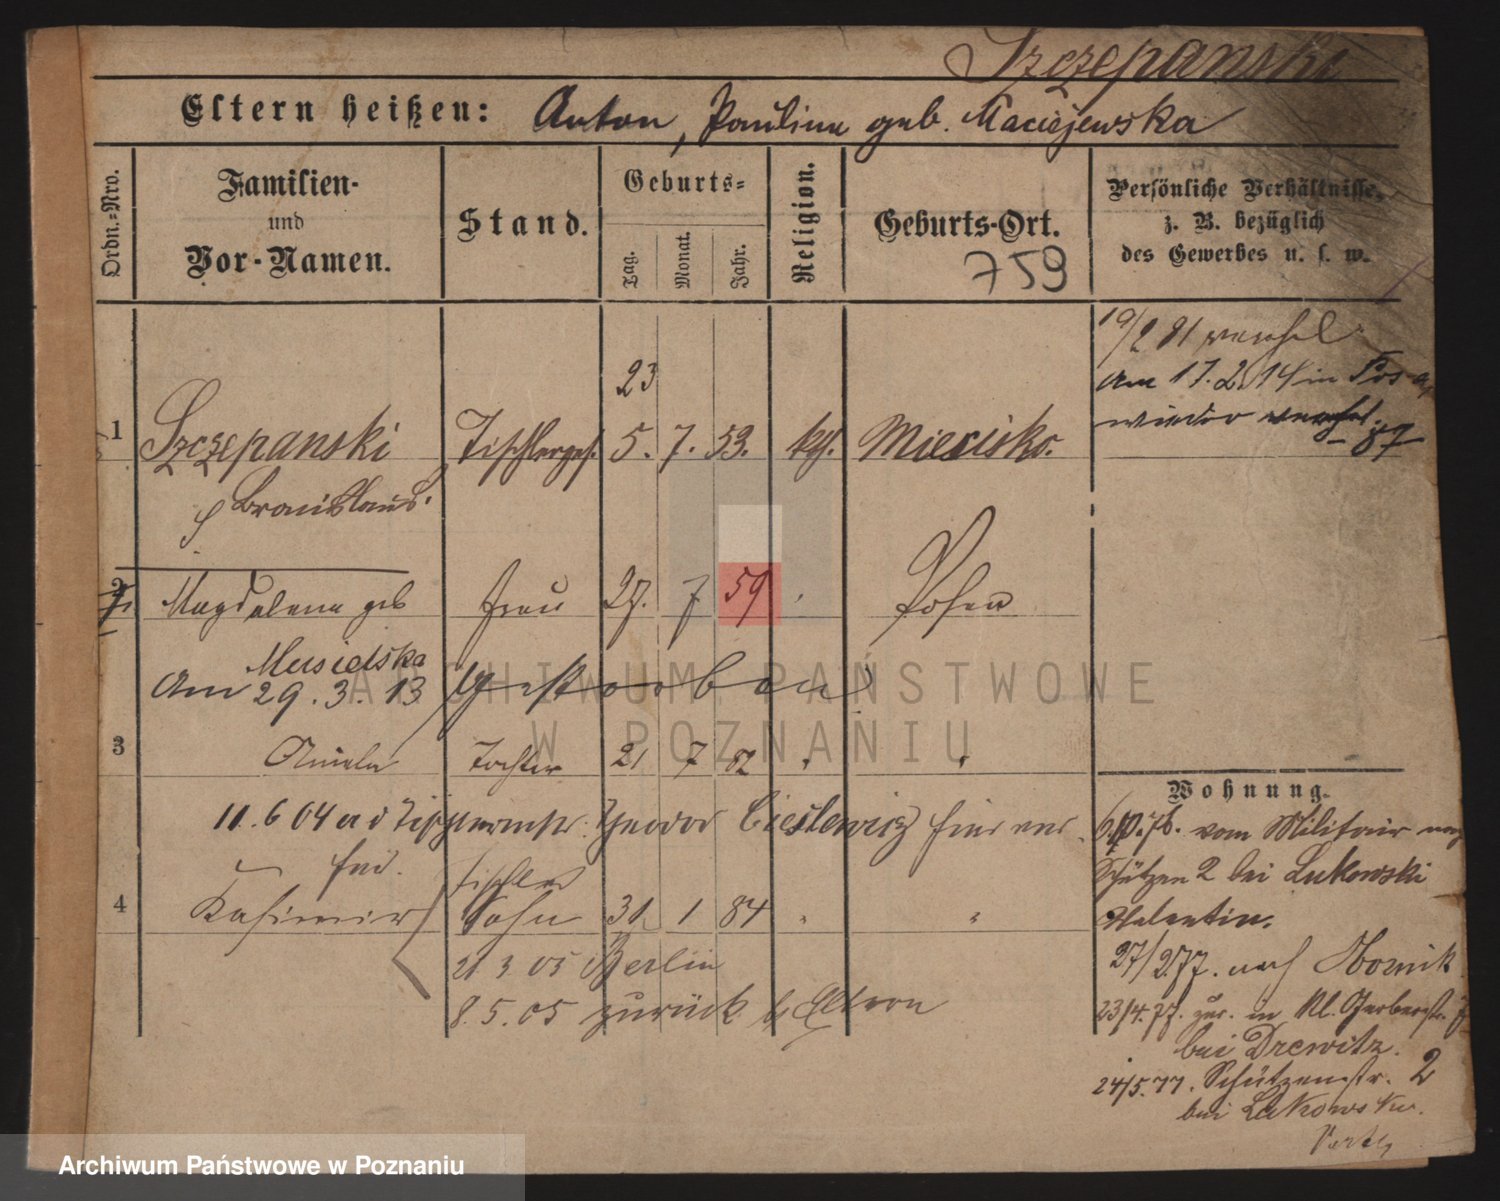 Szczepanski
Eltern heißen: Anton, Paulina geb. Maciejewska
Ordn.-Nro.
Familien-
und
Vor-Namen.
Stand.
Geburts-
Tag.
Monat.
Jahr.
Religion.
Geburts-Ort.
759
Persönliche Verhältnisse,
z. B. bezüglich
des Gewerbes u. s. w.
am 17.2.14 in
wieder
87
23
1 Szczepanski Tischlerges. 5. 7. 53. kth. Miecisko.
Bronislaus.
2 Magdalena geb Frau 27. 7 59 Posen
Musielska
Am 29.3.13 gestorben
3 Tochter 21 7 82
11.6 04 Theodor Cieslewicz hier
Tischler
4 Kasimir Sohn 31 1 84
21 3 05 Berlin
8.5.05 zurück b Eltern
Wohnung.
vom Militair
Schützen 2 bei Lukowski
Valentin.
27/2.77. nach Obornik
23/4.77. zur. in Kl. Gerberstr. 7
bei Drewitz.
24/5.77. Schützenstr. 2
bei
ARCHIWUM PAŃSTWOWE
W POZNANIU
Archiwum Państwowe w Poznaniu